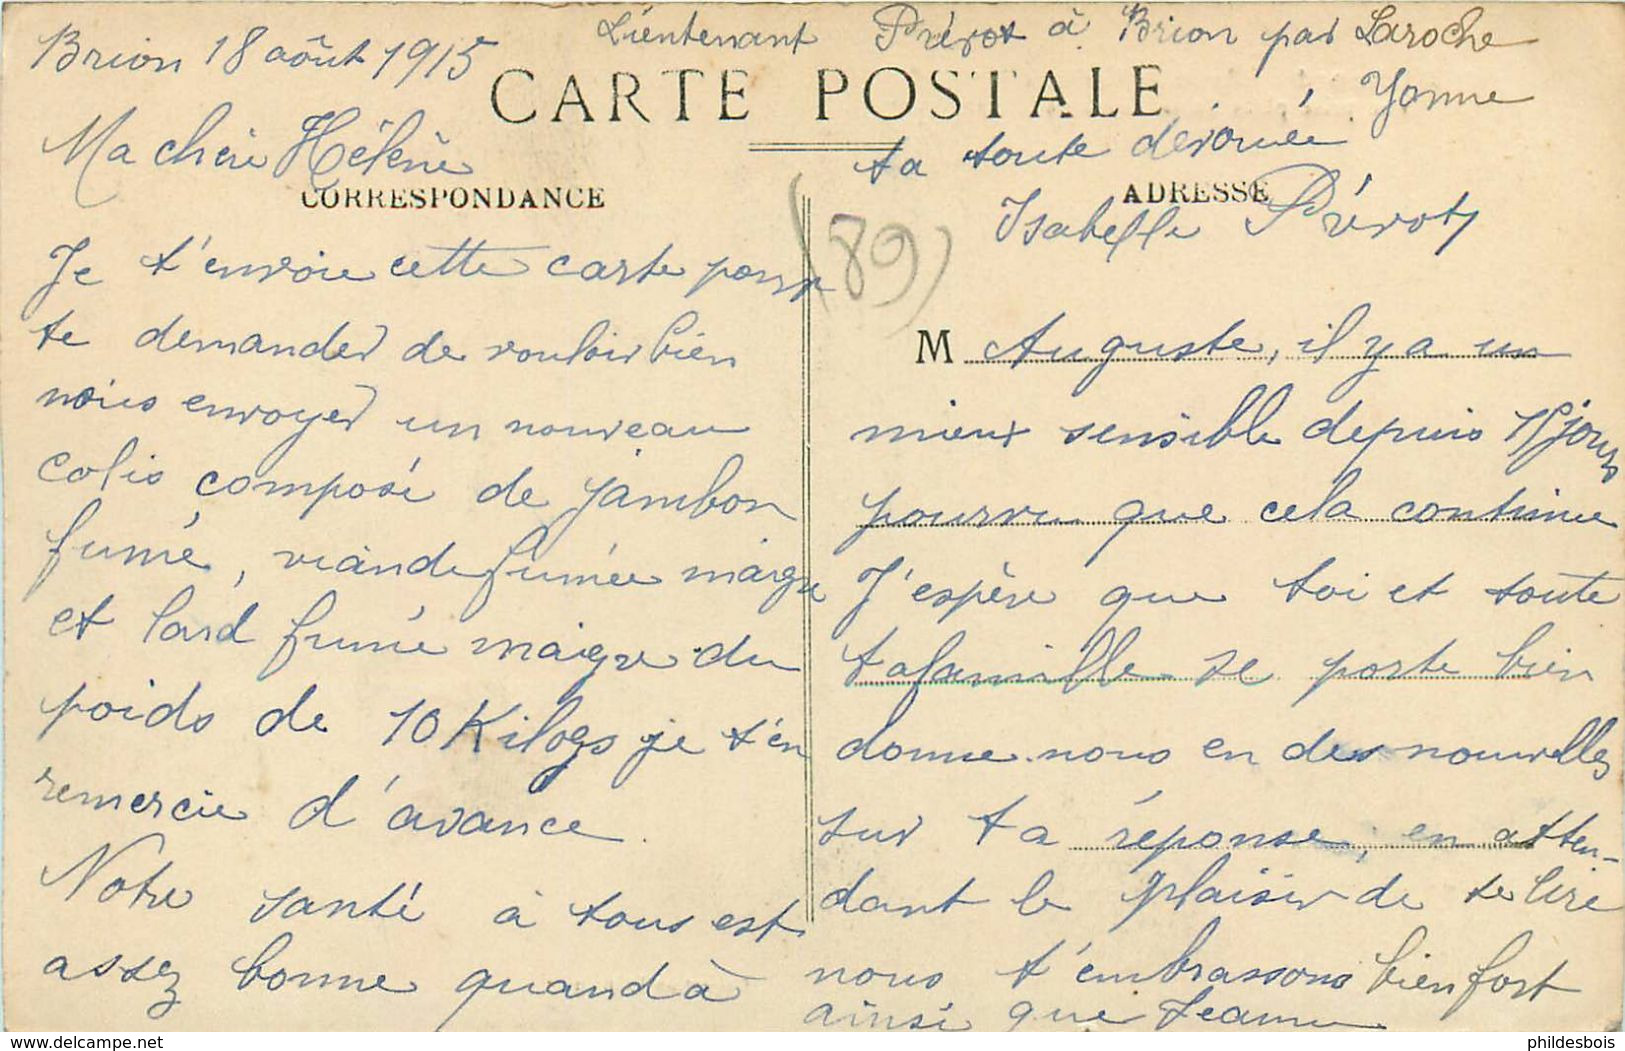 Lieutenant Prévot à Brion par Laroche
Yonne
Brion 18 août 1915
CARTE POSTALE
Ma chère Hélène
CORRESPONDANCE
Je t'envoie cette carte pour
te demander de vouloir bien
nous envoyer un nouveau
colis composé de jambon
fumé, viande fumée maigre
et lard fumé maigre du
poids de 10 Kilogs je t'en
remercie d'avance.
Notre santé à tous est
assez bonne quand à
ADRESSE
(89)
M Auguste, il y a un
mieux sensible depuis 15 jours
pourvu que cela continue
J'espère que toi et toute
ta famille se porte bien
donne nous en des nouvelles
sur ta réponse, en atten-
dant le plaisir de te lire
nous t'embrassons bien fort
ainsi que Jeanne
ta toute dévouée
Isabelle Prévot
www.delcampe.net
phildesbois